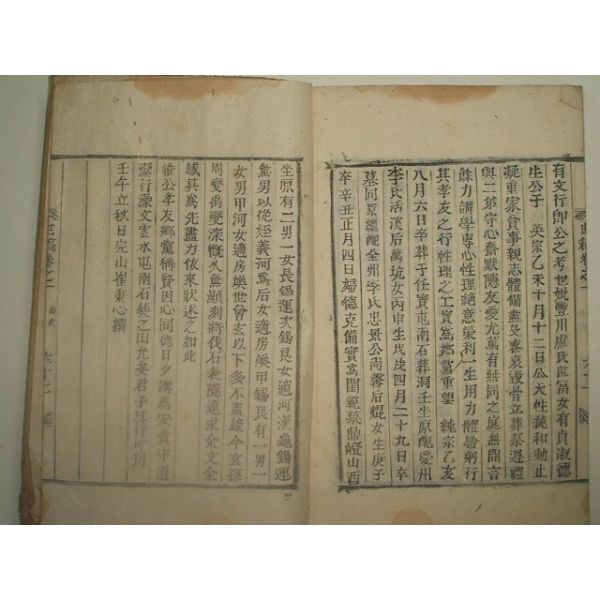 有文行即公之考世妣豐川盧氏世富女有貞淑德
生公于 英宗乙未十月十二日公天性純和動止
凝重家貧事親志體備盡及喪哀毀骨立葬祭遵禮
與二弟守心齋默隱友愛尤篤有無同之庭無間言
餘力講學專心性理絶意榮利一生用力體驗躬行
其孝友之行性理之工實爲鄕黨重望 純宗乙亥
八月六日卒葬于任實屯南石葬洞壬坐原配慶州
李氏活溪后萬坑女丙申生戊戌四月二十九日卒
墓同原繼配全州李氏忠景公南馨后焜女生庚子
卒辛丑正月四日婦德克備實爲閨範墓鼎嶝山酉
坐原有二男一女長錫運次錫艮女適河漢龜錫運
無男以從姪義河爲后女適房煥甲錫艮有一男一
女男甲河女適房煥世曾玄以下多不盡錄今玄孫
周燮爲慮深慨久無顯刻將伐石表隧遠求余文余
感其爲先盡力依來狀述之如此
惟公孝友鄕黨稱賢因心同德日夕講磨安貧守道
潔行藻文雲水屯南石葬之田允矣君子
壬午立秋日完山崔秉心撰